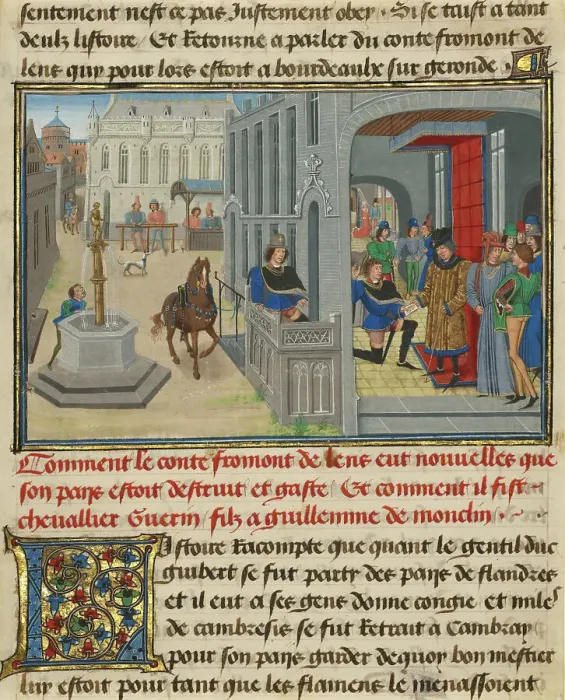 sentement nest ce pas Justement obey. Si se taist a tant
deulx listoire Et Retourne a parler du conte fromont de
lens quy pour lors estoit a bourdeaulx sur geronde.
Comment le conte fromont de lens eut nouuelles que
son pays estoit destruit et gaste Et comment il fist
cheuallier Guerin filz a guillemme de monclin.
Listoire Racompte que quant le gentil duc
guibert se fut party des pays de flandres
et il eut a ses gens donne congie et mile
de cambresis se fut Retrait a Cambray
pour son pays garder dequoy bon mestier
luy estoit pour tant que les flamens le menassoient